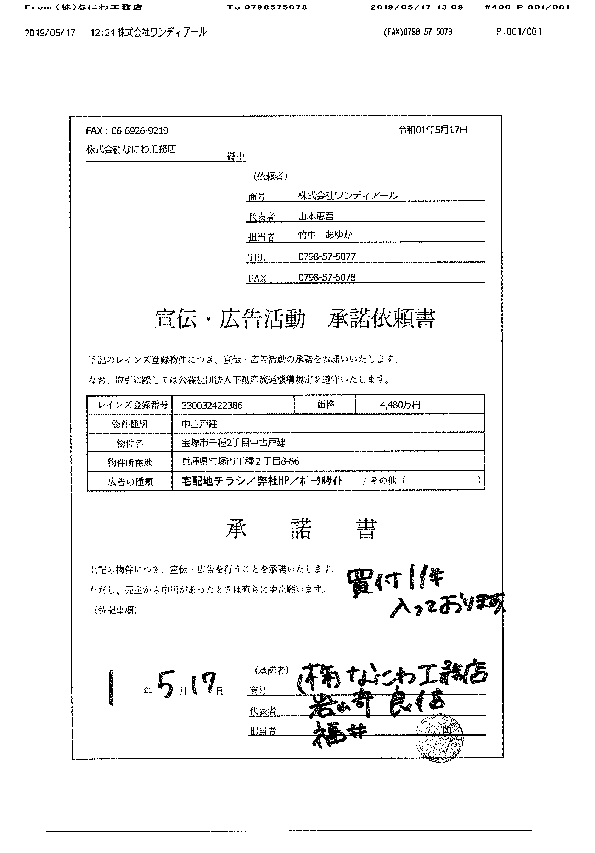 From (株)なにわ工務店 To 0798575078 2019/05/17 13:09 #400 P.001/001
2019/05/17 12:21 株式会社ワンディアール (FAX)0798 57 5078 P.001/001
FAX：06-6926-9219 令和01年5月17日
株式会社なにわ工務店 御中
（依頼者）
商号 株式会社ワンディアール
代表者 山本
担当者 竹中 あゆか
TEL 0798-57-5077
FAX 0798-57-5078
宣伝・広告活動 承諾依頼書
下記のレインズ登録物件につき、宣伝・広告活動の承諾をお願いいたします。
なお、取引に際しては公益社団法人
レインズ登録番号 330032422386 価格 4,480万円
物件種別 中古戸建
物件名 宝塚市 2丁目中古戸建
物件所在地 兵庫県宝塚市 2丁目8-86
広告の種類 宅配地チラシ／弊社HP／ポータルサイト ／その他（ ）
承諾書
上記の物件につき、宣伝・広告を行うことを承諾いたします。
ただし、売主から
（特記事項）
買付11件
入っております
1 年 5 月 17 日
（承諾者）
商号 (株)なにわ工務店
代表者 岩崎 良信
担当者 福井